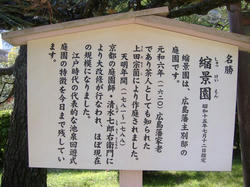 名勝
縮景園
しゅっけいえん
昭和十五年七月十二日指定
縮景園は、広島藩主別邸の
庭園です。
元和六年（一六二〇）広島藩家老
であり茶人としても知られる
上田宗箇により作庭されました。
天明年間（一七八一〜一七八八）
京都の庭園師・清水七郎右衛門に
より大改修が行なわれ、ほぼ現在
の規模になりました。
江戸時代の代表的な池泉回遊式
庭園の特徴を今日まで残してい
ます。